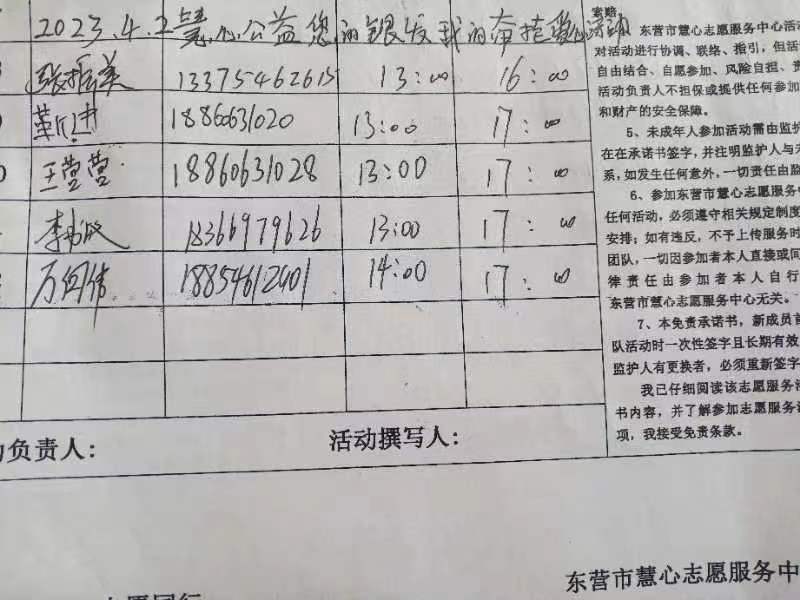 2023.4.2慧心公益您的银发我的牵挂爱心
张振美 13375462615 13:00 16:00
18860631020 13:00 17:00
王莹莹 18860631028 13:00 17:00
李 18366979626 13:00 17:00
万何伟 18854612401 14:00 17:00
负责人：
活动撰写人：
索赔。
东营市慧心志愿服务中心活动
对活动进行协调、联络、指引，但活
自由结合、自愿参加、风险自担、责
活动负责人不担保或提供任何参加
和财产的安全保障。
5、未成年人参加活动需由监护
在在承诺书签字，并注明监护人与未
系，如发生任何意外，一切责任由监
6、参加东营市慧心志愿服务中
任何活动，必须遵守相关规定制度
安排；如有违反，不予上传服务时
团队，一切因参加者本人直接或间
律责任由参加者本人自行
东营市慧心志愿服务中心无关。
7、本免责承诺书，新成员首
队活动时一次性签字且长期有效
监护人有更换者，必须重新签字
我已仔细阅读该志愿服务活
书内容，并了解参加志愿服务
项，我接受免责条款。
东营市慧心志愿服务中